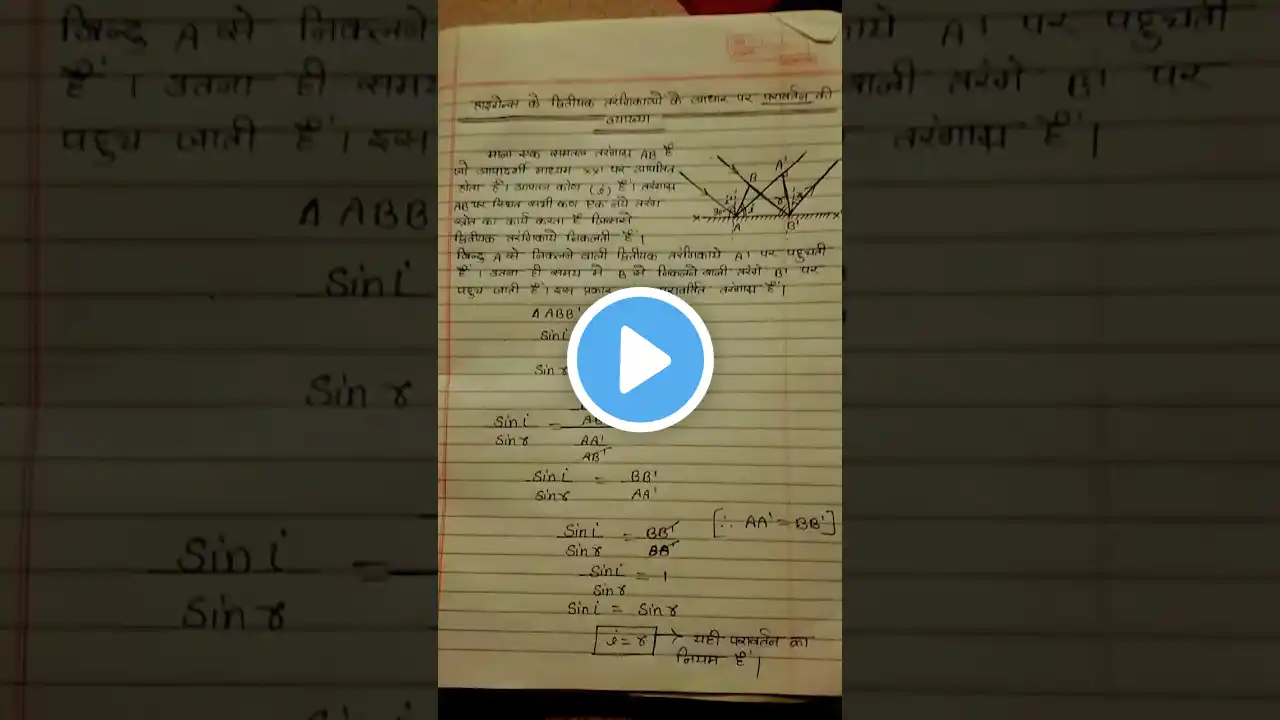 हाइगेन्स के द्वितीयक तरंगिकाओं के आधार पर परावर्तन की
व्याख्या
माना एक समतल तरंगाग्र AB है
जो परावर्ती माध्यम xx' पर आपतित
होता है। आपतन कोण (i) है। तरंगाग्र
AB पर स्थित सभी कण एक नये तरंग
स्रोत का कार्य करता है जिससे
द्वितीयक तरंगिकायें निकलती है।
बिन्दु A से निकलने वाली द्वितीयक तरंगिकाये A' पर पहुचती
है। उतना ही समय में B से निकलने वाली तरंगे B' पर
पहुच जाती है। इस प्रकार परावर्तित तरंगाग्र है।
B
A'
A
B'
X
X'
Δ ABB'
Sin i
Sin r
Sin i = AB'
Sin r AA'
AB'
Sin i = BB'
Sin r AA'
Sin i = BB' [∵ AA' = BB']
Sin r BB'
Sin i = 1
Sin r
Sin i = Sin r
i = r → यही परावर्तन का
नियम है।